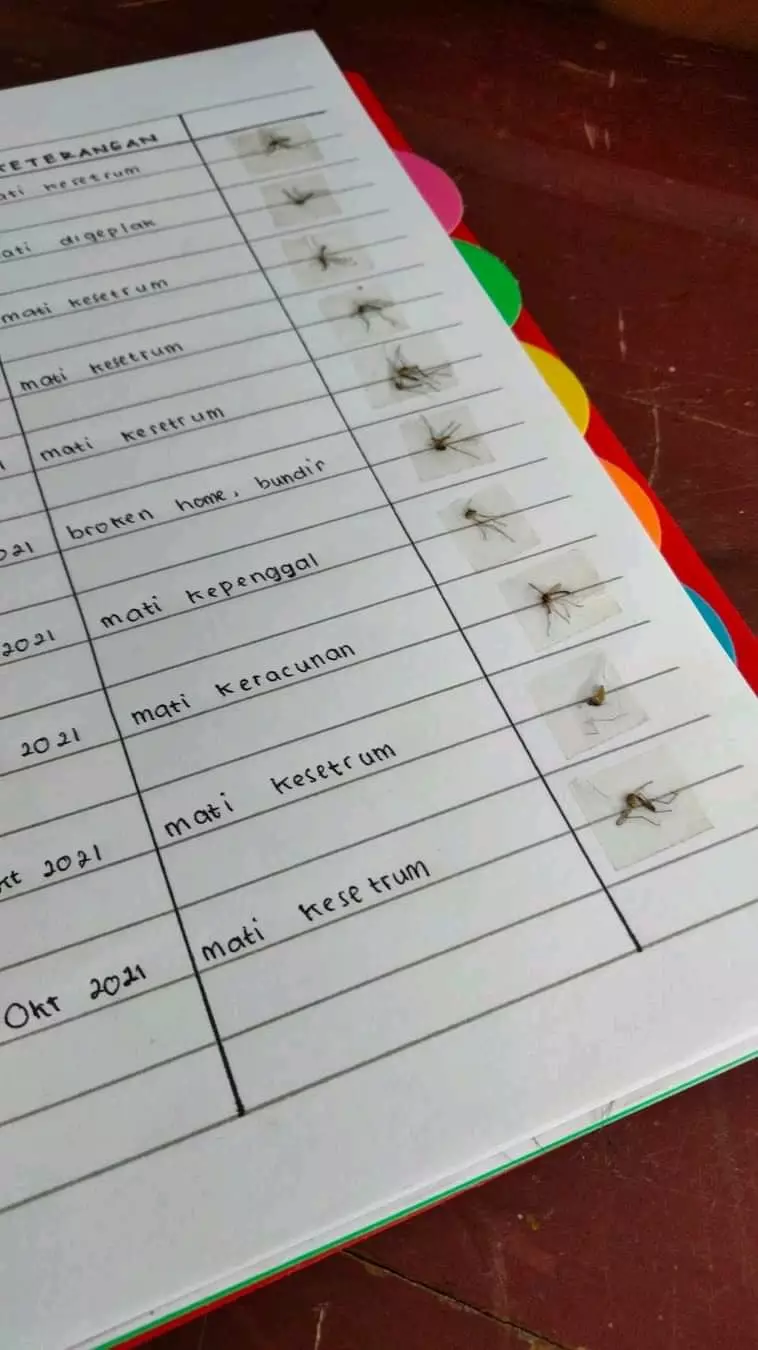 KETERANGAN
mati kesetrum
mati digeplak
mati kesetrum
mati kesetrum
mati kesetrum
021 broken home, bundir
2021 mati kepenggal
2021 mati keracunan
kt 2021 mati kesetrum
Okt 2021 mati kesetrum